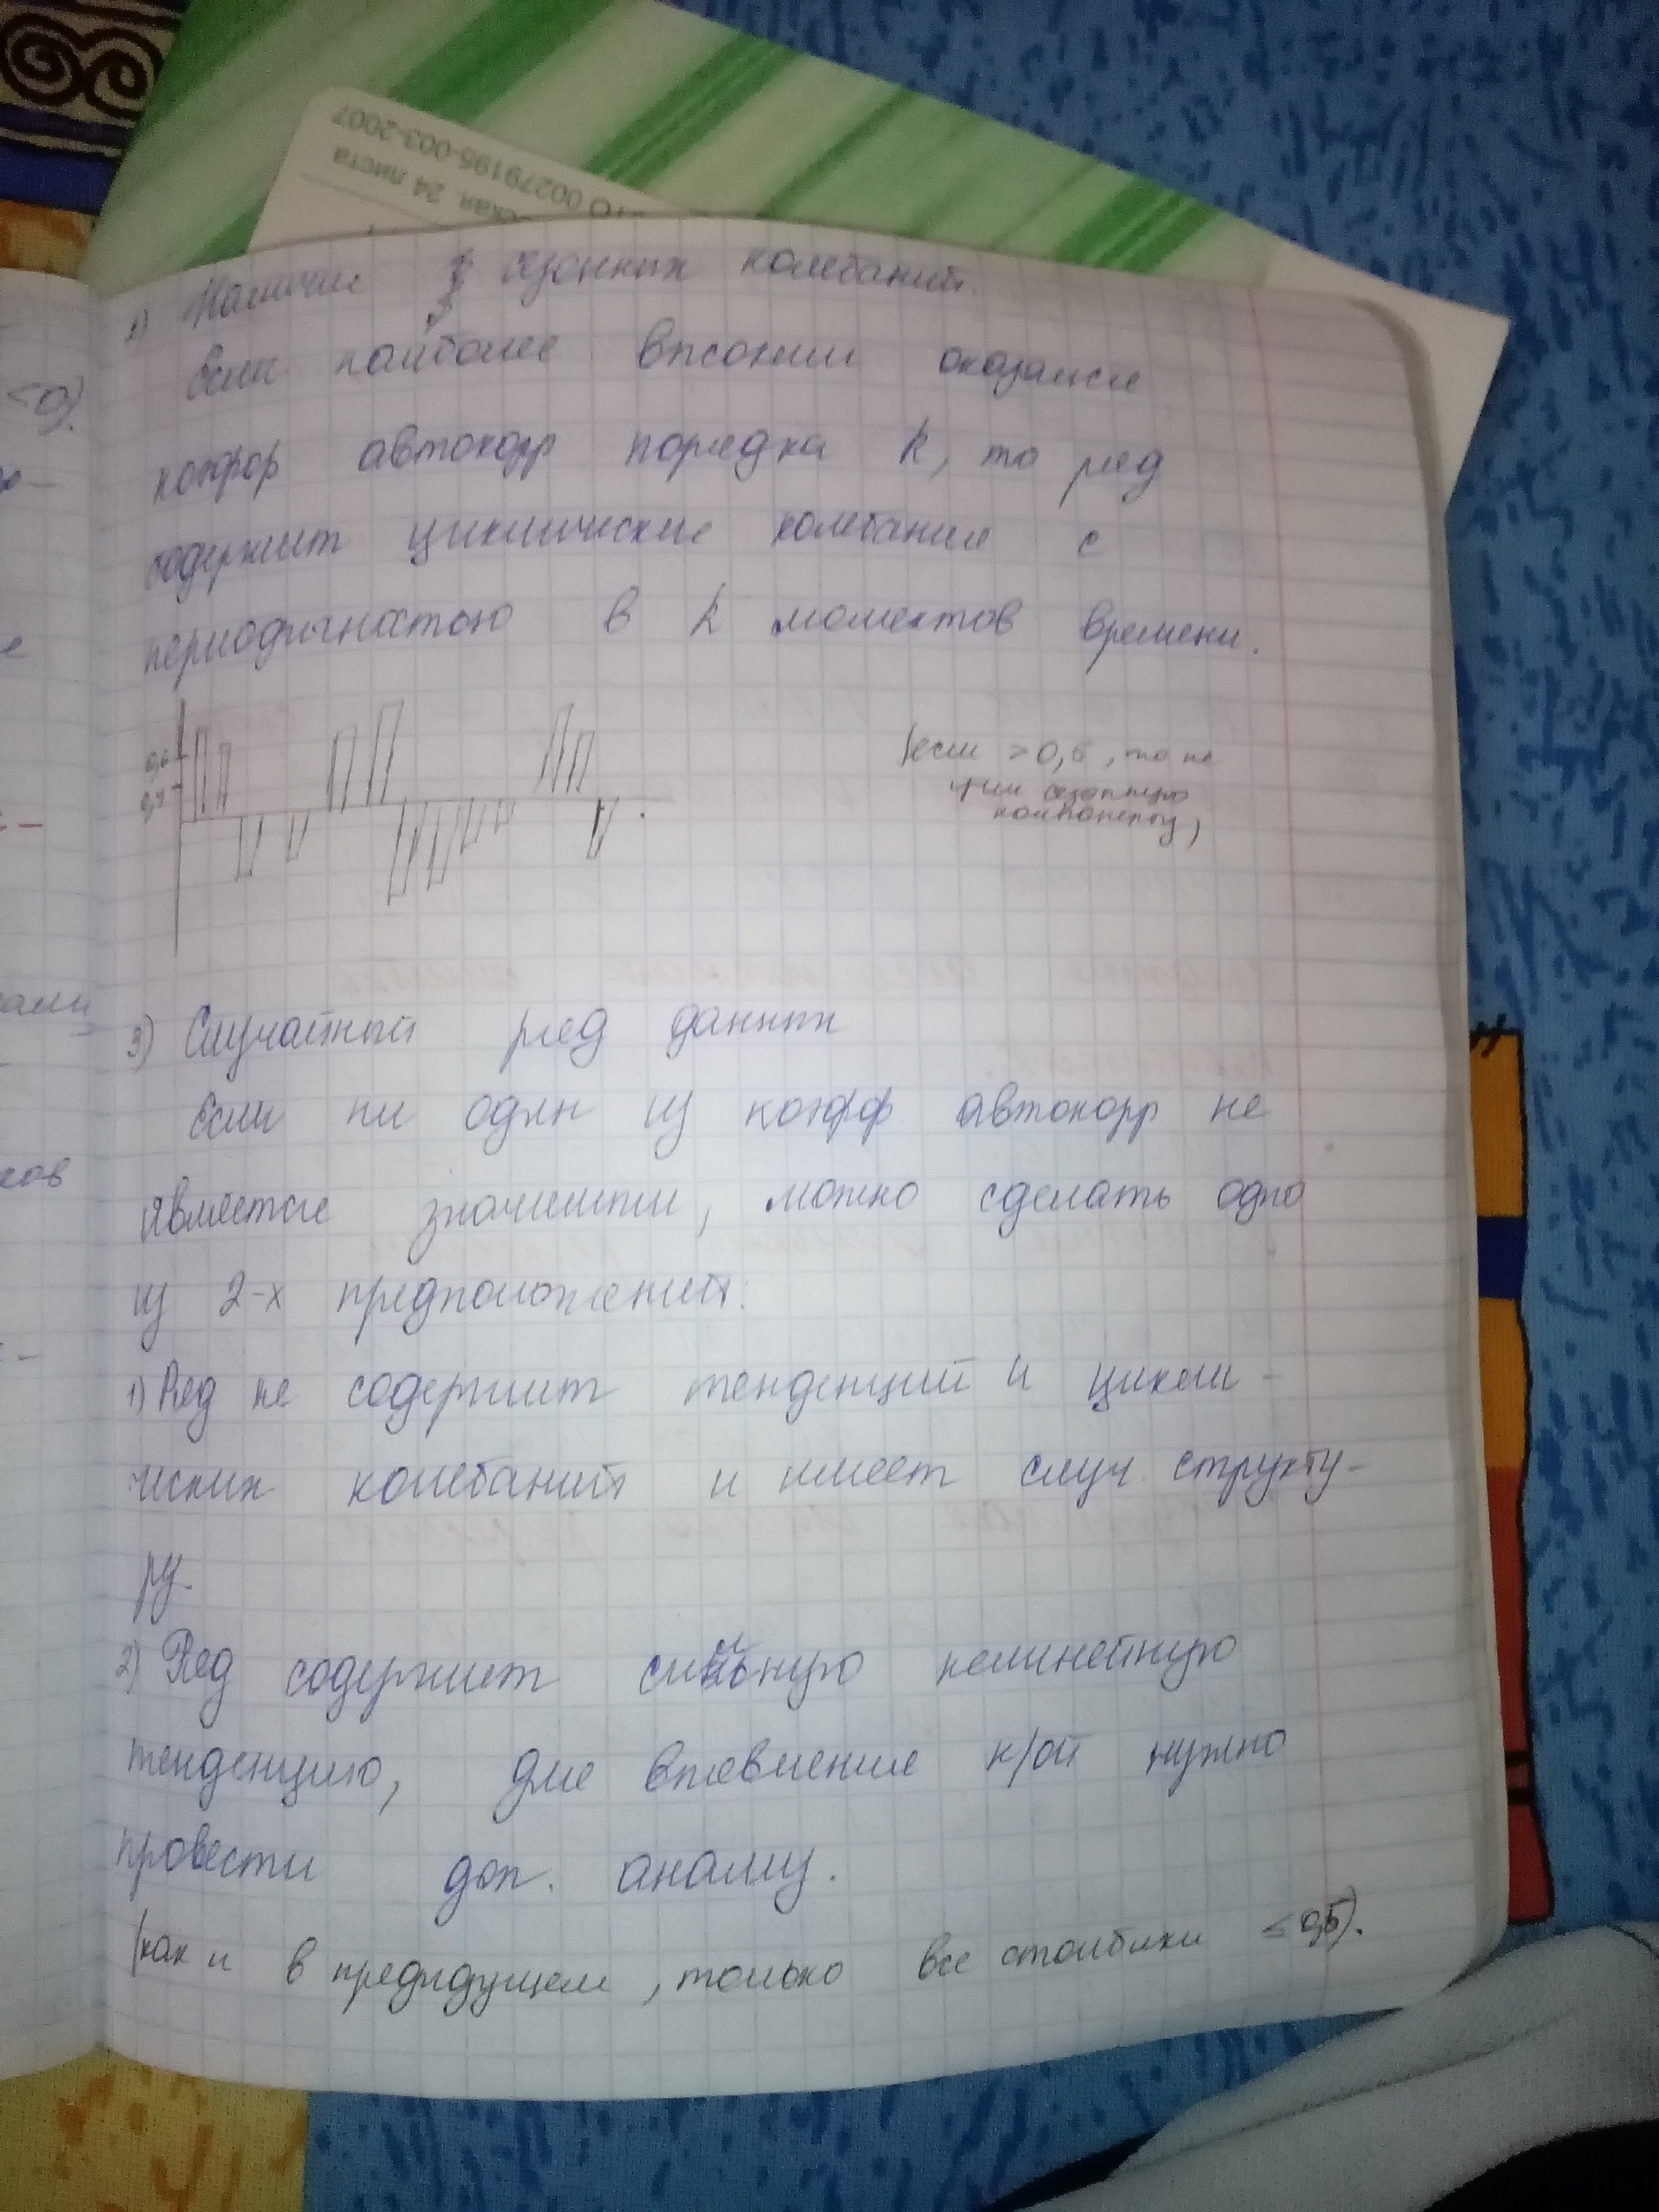 СТО 00279195-003-2007
ская. 24 листа
2) Наличие сезонных колебаний.
Если наиболее высоким оказался
коэфф автокорр порядка k, то ряд
содержит циклические колебания с
периодичностью в k моментов времени.
0,6
0,4
(если > 0,6, то не
сезонную
компоненту)
3) Случайный ряд данных
Если ни один из коэфф автокорр не
является значимым, можно сделать одно
из 2-х предположений:
1) Ряд не содержит тенденций и цикли-
ческих колебаний и имеет случ. структу-
ру.
2) Ряд содержит сильную нелинейную
тенденцию, для выявления к/ой нужно
провести доп. анализ.
(как и в предыдущем, только все столбики ≤ 0,5).
<0).
е
ами
ков